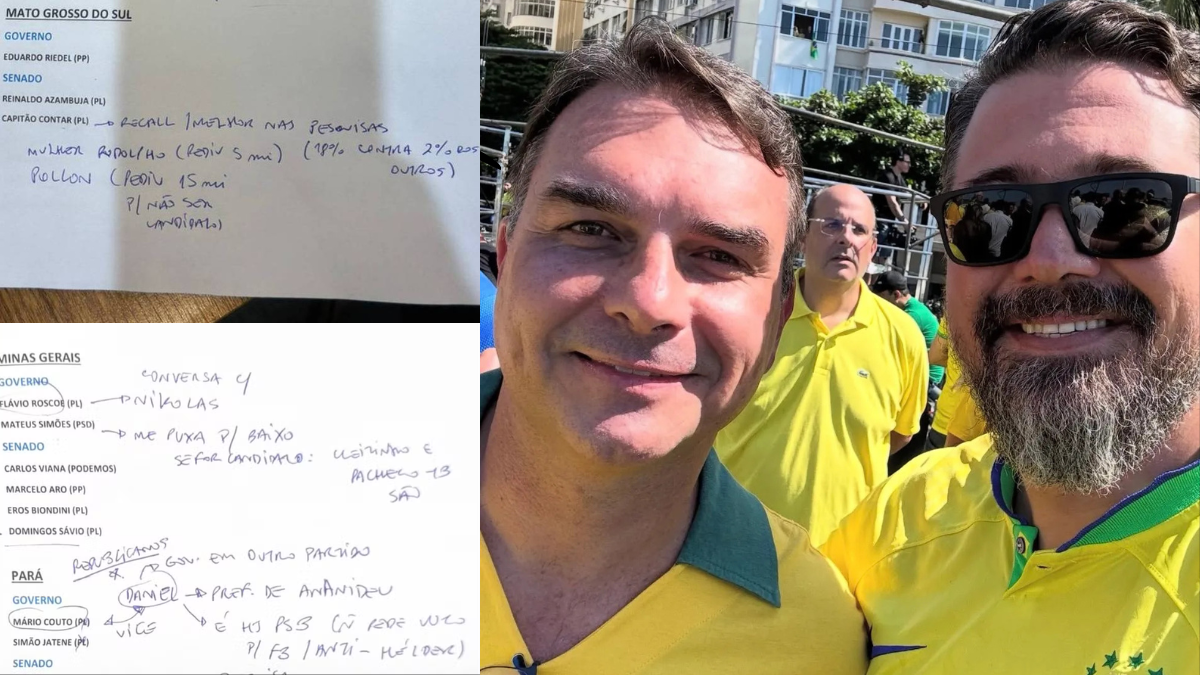 MATO GROSSO DO SUL
GOVERNO
EDUARDO RIEDEL (PP)
SENADO
REINALDO AZAMBUJA (PL)
CAPITÃO CONTAR (PL) → RECALL / MELHOR NAS PESQUISAS
MULHER RODOLFHO (PEDIU 5 mi) (18% CONTRA 2% DOS
OUTROS)
POLLON (PEDIU 15 mi
P/ NÃO SER
CANDIDATO)
MINAS GERAIS
GOVERNO
CONVERSA C/
FLÁVIO ROSCOE (PL) → NIKOLAS
MATEUS SIMÕES (PSD) → ME PUXA P/ BAIXO
SENADO
SE FOR CANDIDATO: CLEITINHO E
CARLOS VIANA (PODEMOS)
PACHECO TB
MARCELO ARO (PP)
SÃO
EROS BIONDINI (PL)
DOMINGOS SÁVIO (PL)
REPUBLICANOS
GOV. EM OUTRO PARTIDO
PARÁ
GOVERNO
DANIEL → PREF. DE ANANIDEU
MÁRIO COUTO (PL)
VICE
É HJ PSB
SIMÃO JATENE (PL)
P/ FB / ANTI-HÉLDER)
SENADO